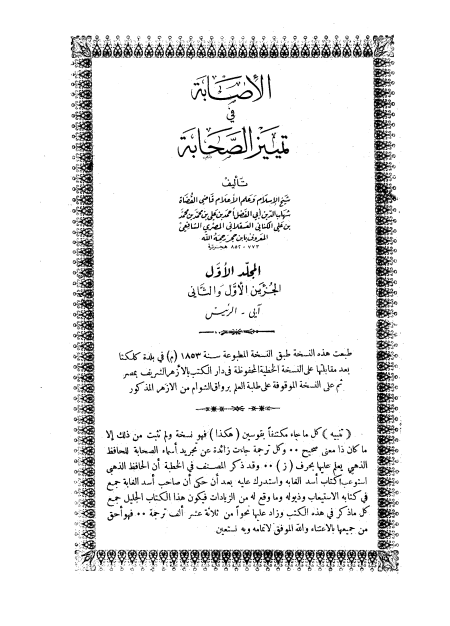 الإصابة
في
تمييز الصحابة
تأليف
شيخ الإسلام وعلم الأعلام قاضي القضاة
شهاب الدين أبي الفضل أحمد بن علي بن محمد بن محمد
بن علي الكناني العسقلاني المصري الشافعي
المعروف بابن حجر رحمه الله
٧٧٣-٨٥٢ هجرية
المجلد الأول
الجزءين الأول والثاني
أبى - الرئيس
طبعت هذه النسخة طبق النسخة المطبوعة سنة ١٨٥٣ (م) في بلدة كلكتا
بعد مقابلتها على النسخة الخطية المحفوظة في دار الكتب بالأزهر الشريف بمصر
ثم على النسخة الموقوفة على طلبة العلم برواق الشوام من الازهر المذكور
( تنبيه ) كل ما جاء مكتنفاً بقوسين (هكذا) فهو نسخة ولم نثبت من ذلك إلا
ما كان ذا معنى صحيح ٠٠ وكل ترجمة جاءت زائدة عن تجريد أسماء الصحابة للحافظ
الذهبي يعلم عليها بحرف ( ز ) ٠٠ وقد ذكر المصنف في الخطبة أن الحافظ الذهبي
استوعب كتاب أسد الغابه واستدرك عليه بعد أن حكى أن صاحب أسد الغابة جمع
في كتابه الاستيعاب وذيوله وما وقع له من الزيادات فيكون هذا الكتاب الجليل جمع
كل ما ذكر في هذه الكتب وزاد عليها نحواً من ثلاثة عشر ألف ترجمة ٠٠ فهو أحق
من جميعها بالاعتناء والله الموفق لاتمامه وبه نستعين